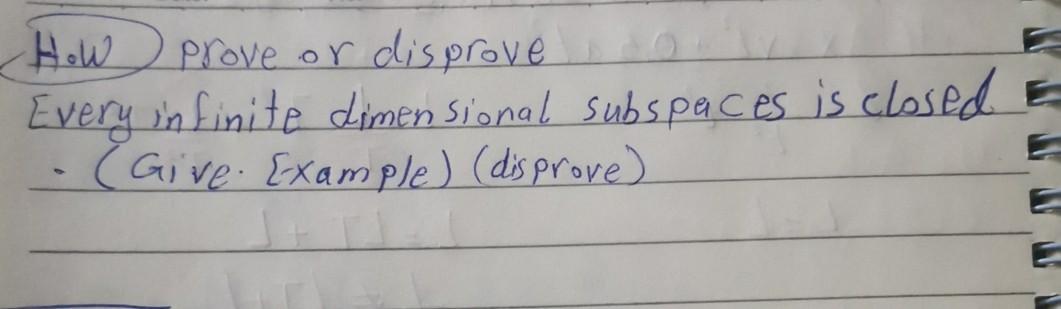 H.W) prove or disprove
Every infinite dimensional subspaces is closed
. (Give. Example) (disprove)